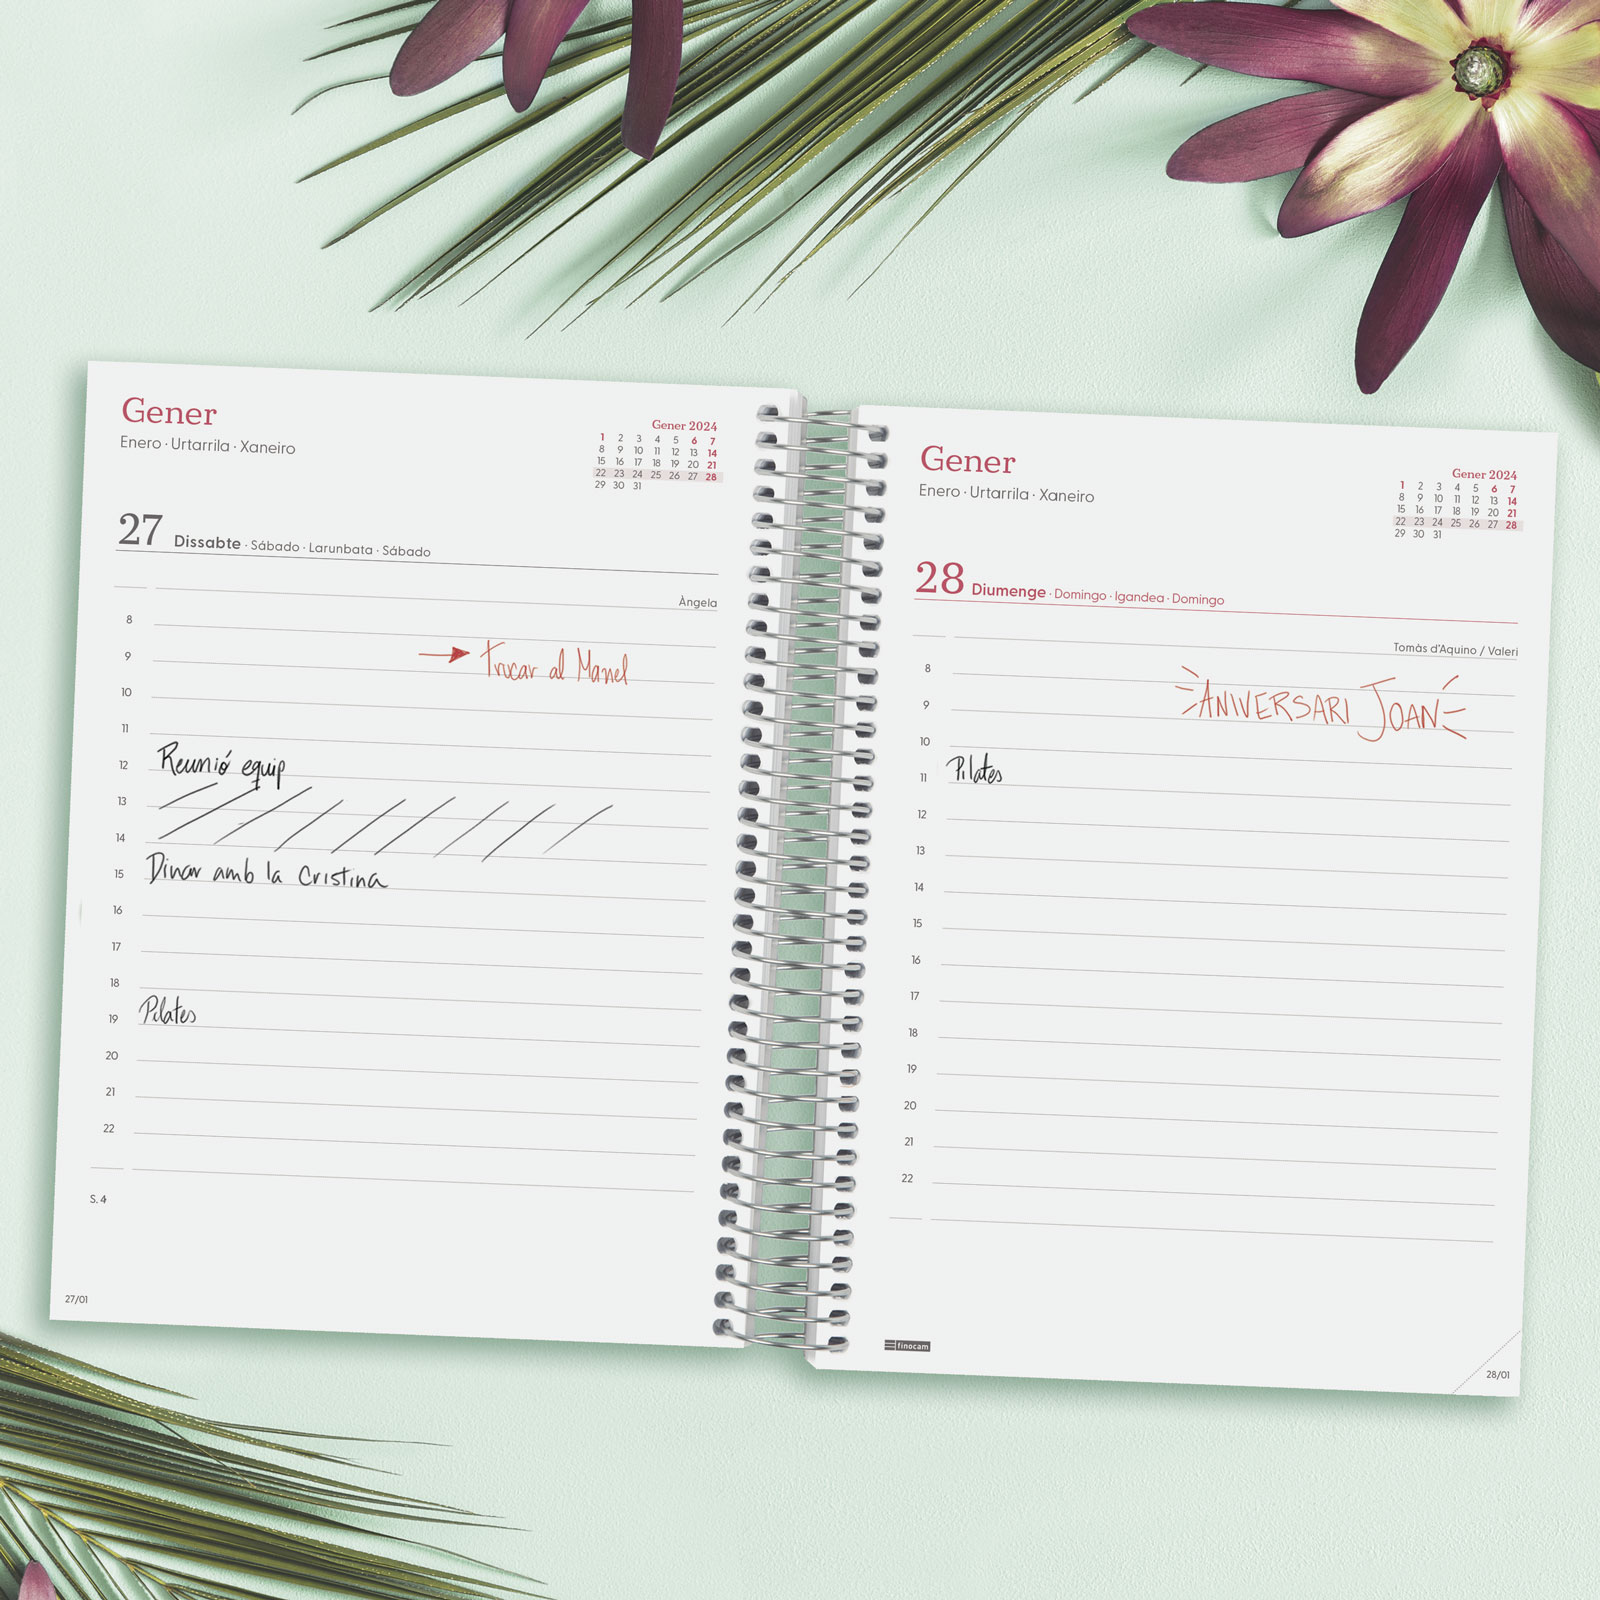 Gener
Enero · Urtarrila · Xaneiro
Gener 2024
1 2 3 4 5 6 7
8 9 10 11 12 13 14
15 16 17 18 19 20 21
22 23 24 25 26 27 28
29 30 31
27 Dissabte · Sábado · Larunbata · Sábado
Àngela
8
9 Trucar al Manel
10
11
12 Reunió equip
13
14
15 Dinar amb la Cristina
16
17
18
19 Pilates
20
21
22
S. 4
27/01
Gener
Enero · Urtarrila · Xaneiro
Gener 2024
1 2 3 4 5 6 7
8 9 10 11 12 13 14
15 16 17 18 19 20 21
22 23 24 25 26 27 28
29 30 31
28 Diumenge · Domingo · Igandea · Domingo
Tomàs d'Aquino / Valeri
8
9 ANIVERSARI JOAN
10
11 Pilates
12
13
14
15
16
17
18
19
20
21
22
finocam
28/01